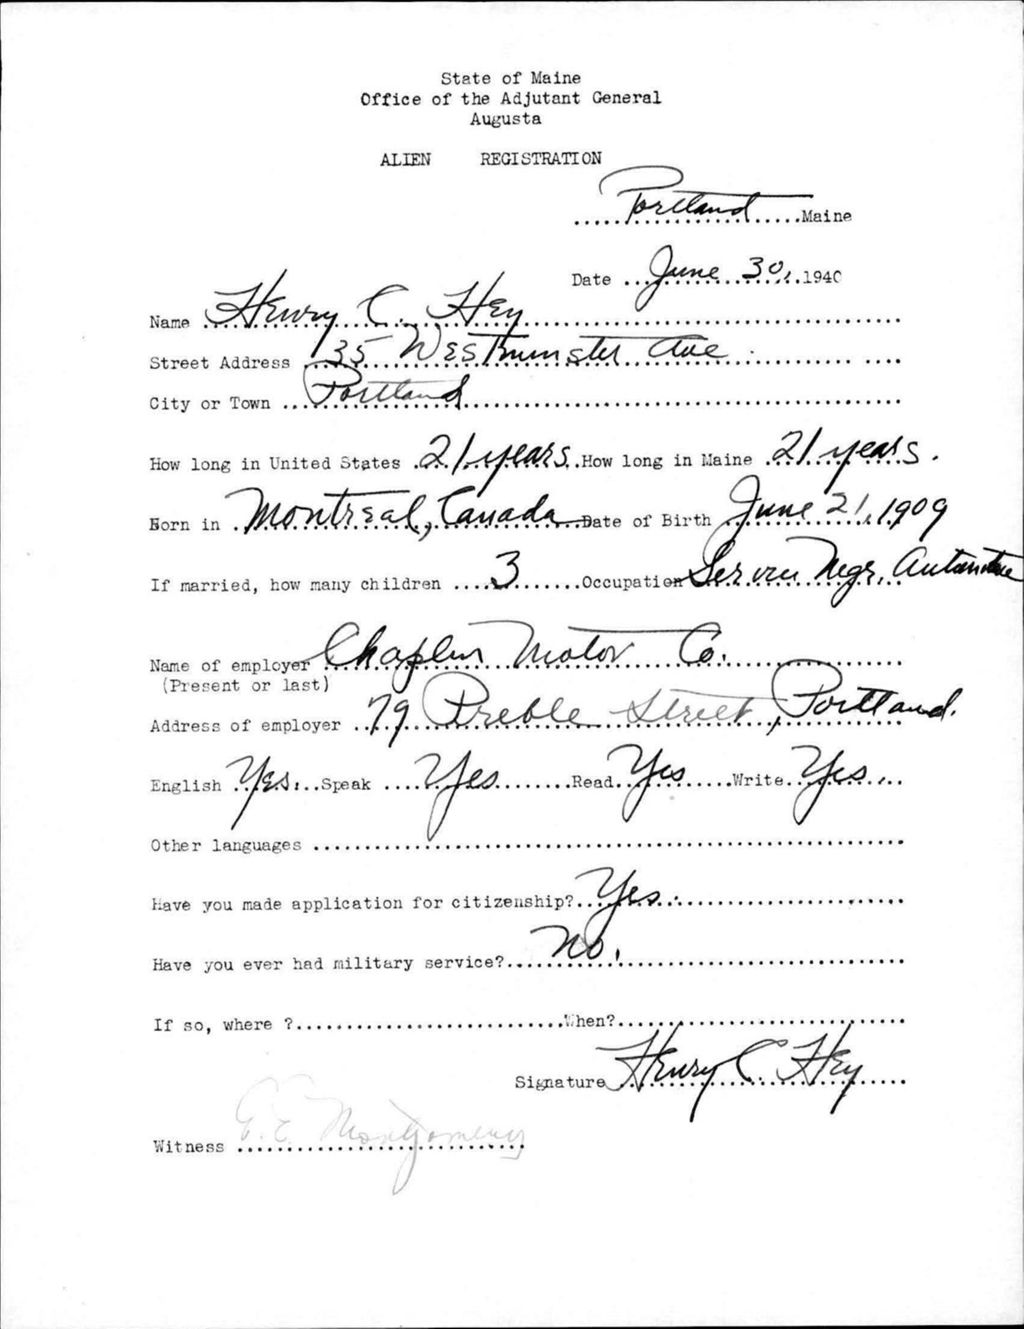 State of Maine
Office of the Adjutant General
Augusta
ALIEN REGISTRATION
Portland Maine
Date June 30, 1940
Name Henry C. Hey
Street Address 35 Westminster Ave
City or Town Portland
How long in United States 21 years. How long in Maine 21 years.
Born in Montreal, Canada Date of Birth June 21, 1909
If married, how many children 3 Occupation Service Mgr. Automotive
Name of employer Chaplin Motor Co.
(Present or last)
Address of employer 79 Preble Street, Portland.
English Yes. Speak Yes Read Yes Write Yes.
Other languages
Have you made application for citizenship? Yes
Have you ever had military service? No.
If so, where ? When?
Signature Henry C. Hey
Witness E. E. Montgomery